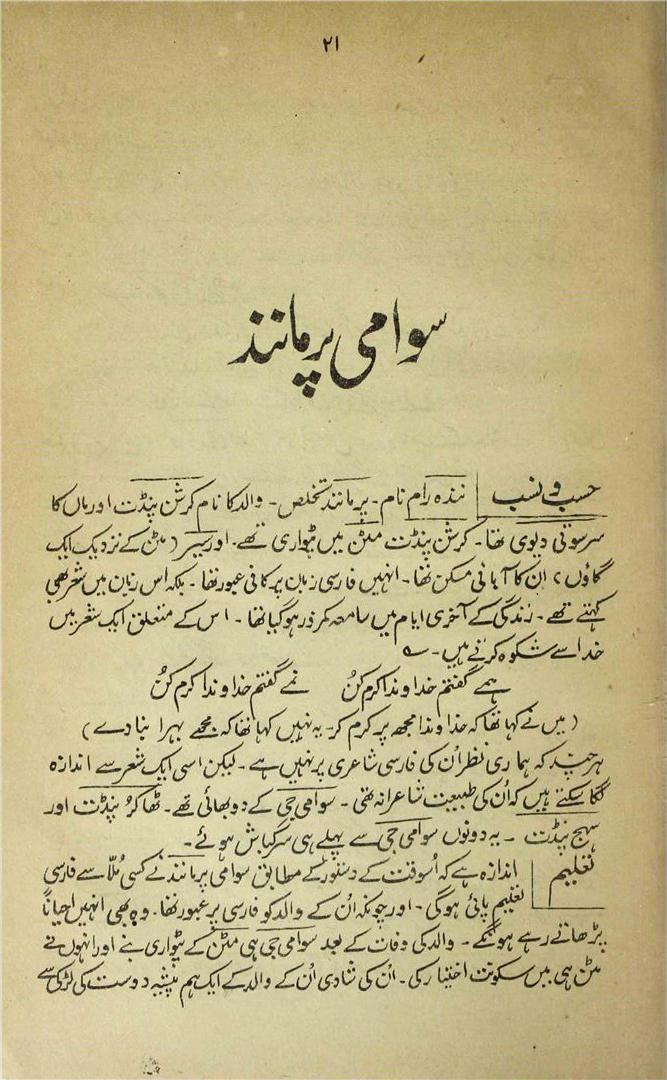 ۲۱
سوامی پرمانند
حسب و نسب نندہ رام نام۔ پرمانند تخلص۔ والد کا نام کرشن پنڈت اور ماں کا
سرسوتی دیوی تھا۔ کرشن پنڈت مٹن میں پٹواری تھے۔ اور سیر (مٹن کے نزدیک ایک
گاؤں) ان کا آبائی مسکن تھا۔ انہیں فارسی زبان پر کافی عبور تھا۔ بلکہ اس زبان میں شعر بھی
کہتے تھے۔ زندگی کے آخری ایام میں سامعہ کمزور ہو گیا تھا۔ اس کے متعلق ایک شعر میں
خدا سے شکوہ کرتے ہیں۔ ؎
ہمے گفتم خداوندا کرم کن نمے گفتم خداوندا کرم کن
(میں نے کہا تھا کہ خداوندا مجھ پر کرم کر۔ یہ نہیں کہا تھا کہ مجھے بہرا بنا دے)
ہر چند کہ ہماری نظر اُن کی فارسی شاعری پر نہیں ہے۔ لیکن اسی ایک شعر سے اندازہ
لگا سکتے ہیں کہ اُن کی طبیعت شاعرانہ تھی۔ سوامی جی کے دو بھائی تھے۔ ٹھاکر پنڈت اور
سہج پنڈت ۔ یہ دونوں سوامی جی سے پہلے ہی سرگباش ہوئے۔
تعلیم اندازہ ہے کہ اُسوقت کے دستور کے مطابق سوامی پرمانند نے کسی مُلّا سے فارسی
تعلیم پائی ہوگی۔ اور چونکہ اُن کے والد کو فارسی پر عبور تھا۔ وہ بھی انہیں احیاناً
پڑھاتے رہے ہونگے۔ والد کی وفات کے بعد سوامی جی ہی مٹن کے پٹواری بنے اور انہوں نے
مٹن ہی میں سکونت اختیار کی۔ اُن کی شادی اُن کے والد کے ایک ہم پیشہ دوست کی لڑکی سے